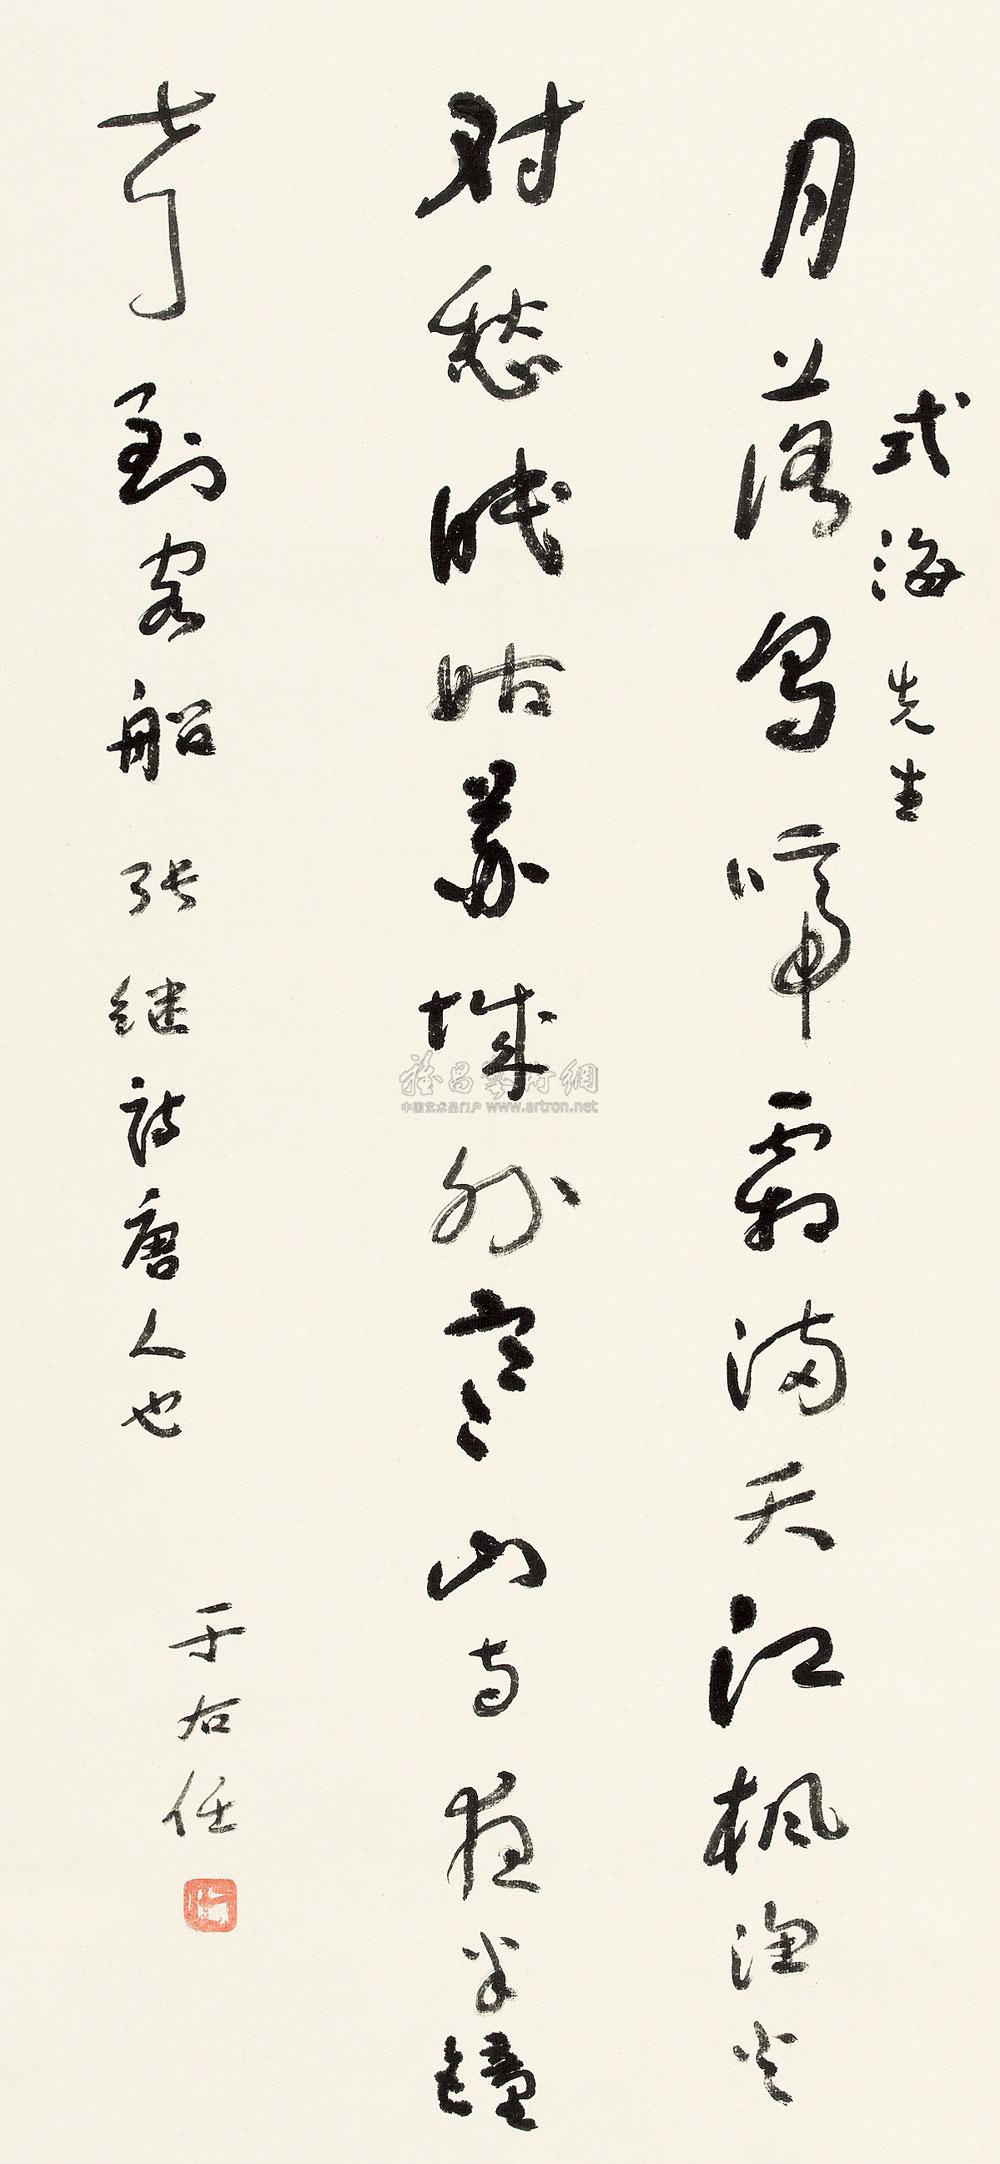 式海先生
月落烏啼霜滿天江楓漁火
對愁眠姑蘇城外寒山寺夜半鐘
聲到客船 張继詩唐人也
于右任
雅昌藝術網
中国艺术品门户 www.artron.net